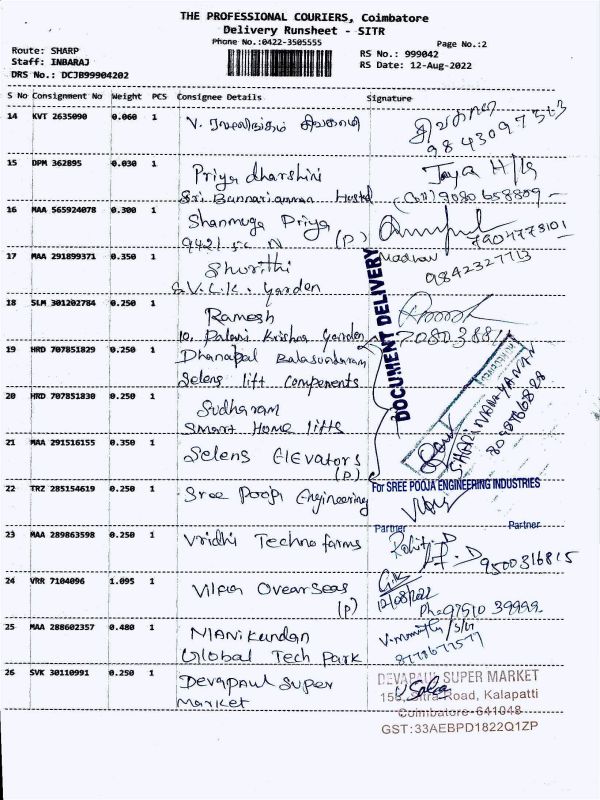 THE PROFESSIONAL COURIERS, Coimbatore
Delivery Runsheet - SITR
Phone No.:0422-3505555
Page No.:2
Route: SHARP
Staff: INBARAJ
RS No.: 999042
RS Date: 12-Aug-2022
DRS No.: DCJB99904202
S No Consignment No Weight PCS Consignee Details Signature
14 KVT 2635090 0.060 1 V.
9843097513
15 DPM 362895 0.030 1 Priya dharshini
Sri Bannariamman Hostel
Jaya H/lg
9080658809
16 MAA 565924078 0.300 1 Shanmuga Priya
(P)
7904773101
17 MAA 291899371 0.350 1 Shurithi
S.V.L.K. Garden
Madhav
9842327713
18 SLM 301202784 0.250 1 Ramesh
10, Palani Krishna Garden
DOCUMENT DELIVERY
19 HRD 707851829 0.250 1 Dhanapal Balasundaram
Selens lift Components
20 HRD 707851830 0.250 1 Sudharam
Smart Home lifts
S.HARINARAYANAN
21 MAA 291516155 0.350 1 Selens Elevators
(P)
22 TRZ 285154619 0.250 1 Sree Pooja Engineering
For SREE POOJA ENGINEERING INDUSTRIES
Partner Partner
23 MAA 289863598 0.250 1 Vridhi Techno farms
Rohit.D
9500316815
24 VRR 7104096 1.095 1 Vilpa Overseas
(P)
12/08/2022
Ph:97510 39999.
25 MAA 288602357 0.480 1 Manikandan
Global Tech Park
26 SVK 30110991 0.250 1 Devapaul Super
Market
DEVAPAUL SUPER MARKET
Road, Kalapatti
Coimbatore-641048
GST:33AEBPD1822Q1ZP